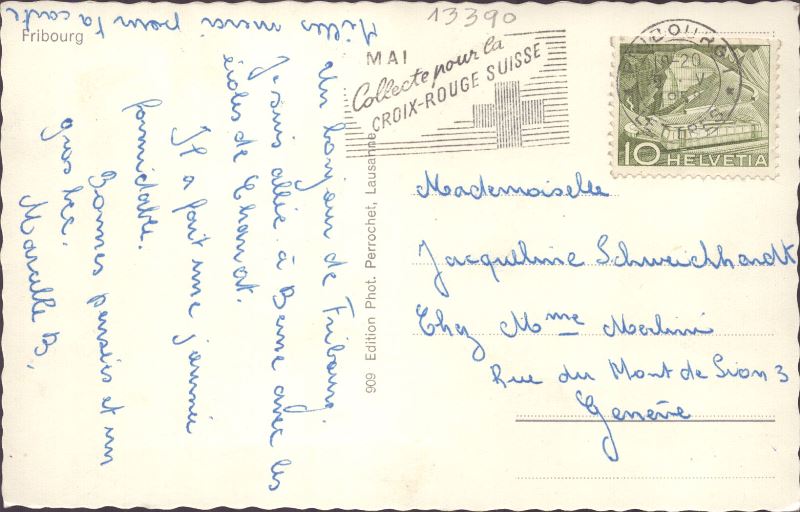 Fribourg
13390
MAI
Collecte pour la
CROIX-ROUGE SUISSE
10 HELVETIA
Milles merci pour ta carte
Un bonjour de Fribourg.
Je suis allée à Berne avec les
écoles de
Il a fait une journée
formidable.
Bonnes pensées et un
gros bec.
Marcelle B.
909 Edition Phot. Perrochet, Lausanne
Mademoiselle
Jacqueline Schweichhardt
Chez Mme Merlini
Rue du Mont de Sion 3
Genève